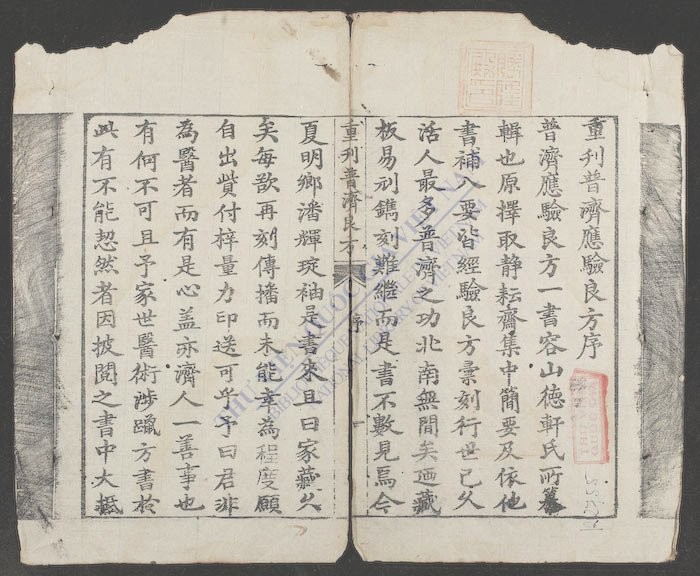 重刋普濟應驗良方序
普濟應驗良方一書容山德軒氏所纂
輯也原擇取静耘齋集中簡要及依他
書補入要皆經驗良方彙刻行世已久
活人最多普濟之功北南無間矣迺藏
板易刓鐫刻難繼而是書不數見焉今
重刋普濟良方 序 一
夏明鄉潘輝珽袖是書來且曰家藏久
矣每欲再刻傳播而未能幸為程度願
自出貲付梓量力印送可乎予曰君非
為醫者而有是心盖亦濟人一善事也
有何不可且予家世醫術涉躐方書於
此有不能恝然者因披閱之書中大抵
THƯ VIỆN QUỐC GIA VIỆT NAM
BIBLIOTHÈQUE NATIONALE DU VIETNAM
NATIONAL LIBRARY OF VIETNAM